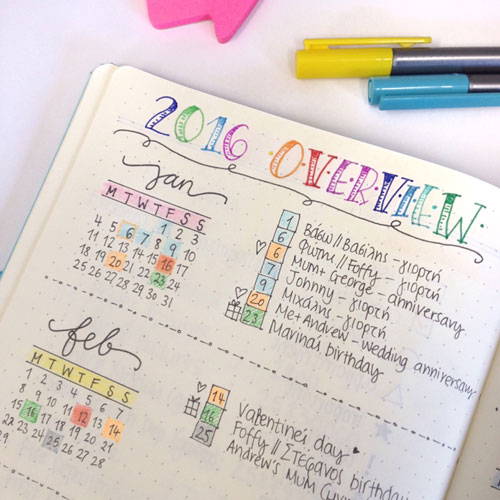 2016 ·OVERVIEW·
jan
M T W T F S S
1 2 3
4 5 6 7 8 9 10
11 12 13 14 15 16 17
18 19 20 21 22 23 24
25 26 27 28 29 30 31
1 Βάσω // Βασίλης - γιορτή
6 // Foffy - γιορτή
6 Mum + George - anniversary
7 Johnny - γιορτή
9 Μιχάλης - γιορτή
20 Me + Andrew - wedding anniversary
23 Marina's birthday
feb
M T W T F S S
1 2 3 4 5 6 7
8 9 10 11 12 13 14
15 16 17 18 19 20 21
22 23 24 25 26 27 28
14 Valentine's day
16 Foffy // Στέφανος birthday
25 Andrew's Mum